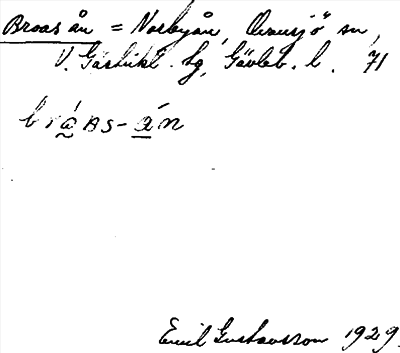 Broas ån = Norbyån, Ovansjö sn,
V. Gästrikl. hg, Gävleb. l. 71
Emil Gustavsson 1929.